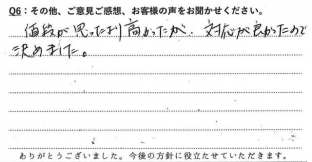 Q6：その他、ご意見ご感想、お客様の声をお聞かせください。
値段が思ったより高かったが、対応が良かったので
決めました。
ありがとうございました。今後の方針に役立たせていただきます。